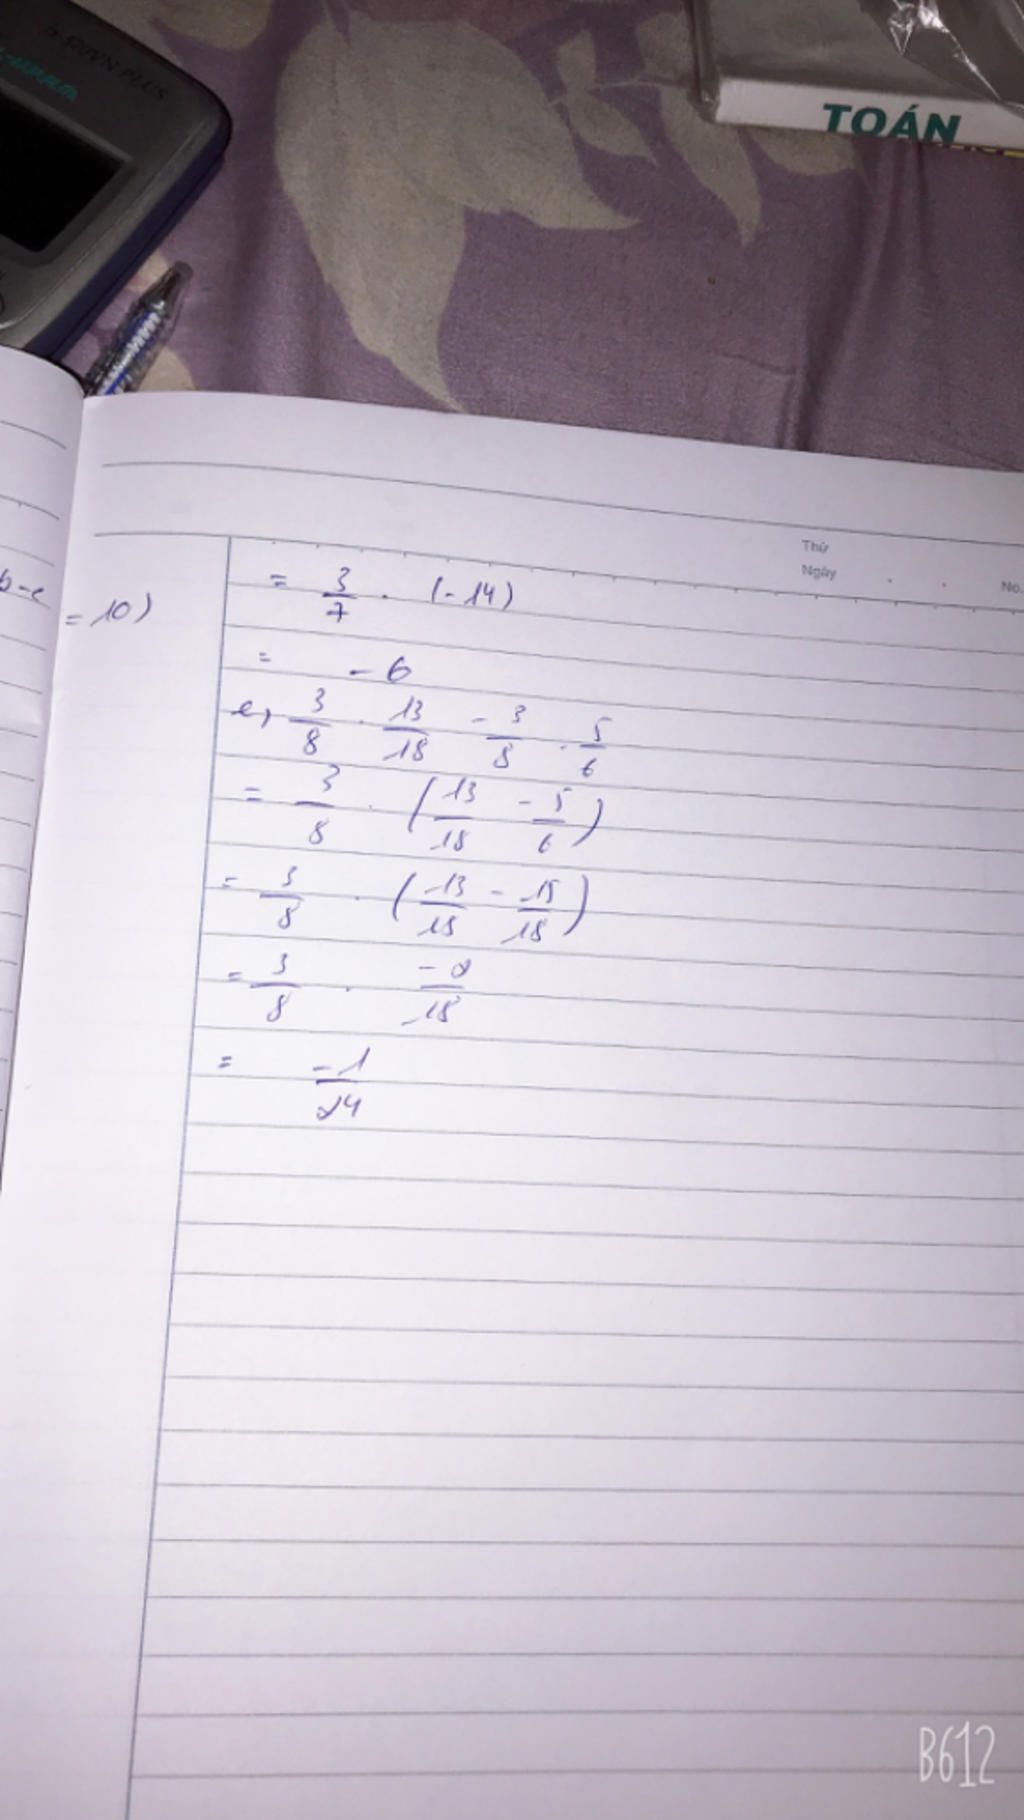 TOÁN
Thứ
Ngày
No.
b-c
= 10)
= 3/7 . (-14)
= -6
e, 3/8 . 13/18 - 3/8 . 5/6
= 3/8 . (13/18 - 5/6)
= 3/8 . (13/18 - 15/18)
= 3/8 . -2/18
= -1/24
B612